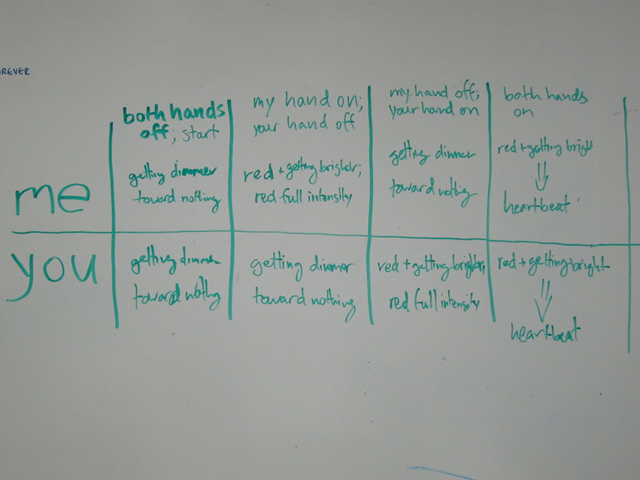 REVER
both hands
off; start
my hand on;
your hand off
my hand off;
your hand on
both hands
on
me
getting dimmer
toward nothing
red + getting brighter;
red full intensity
getting dimmer
toward nothing
red + getting bright
heartbeat
you
getting dimmer
toward nothing
getting dimmer
toward nothing
red + getting brighter;
red full intensity
red + getting bright
heartbeat